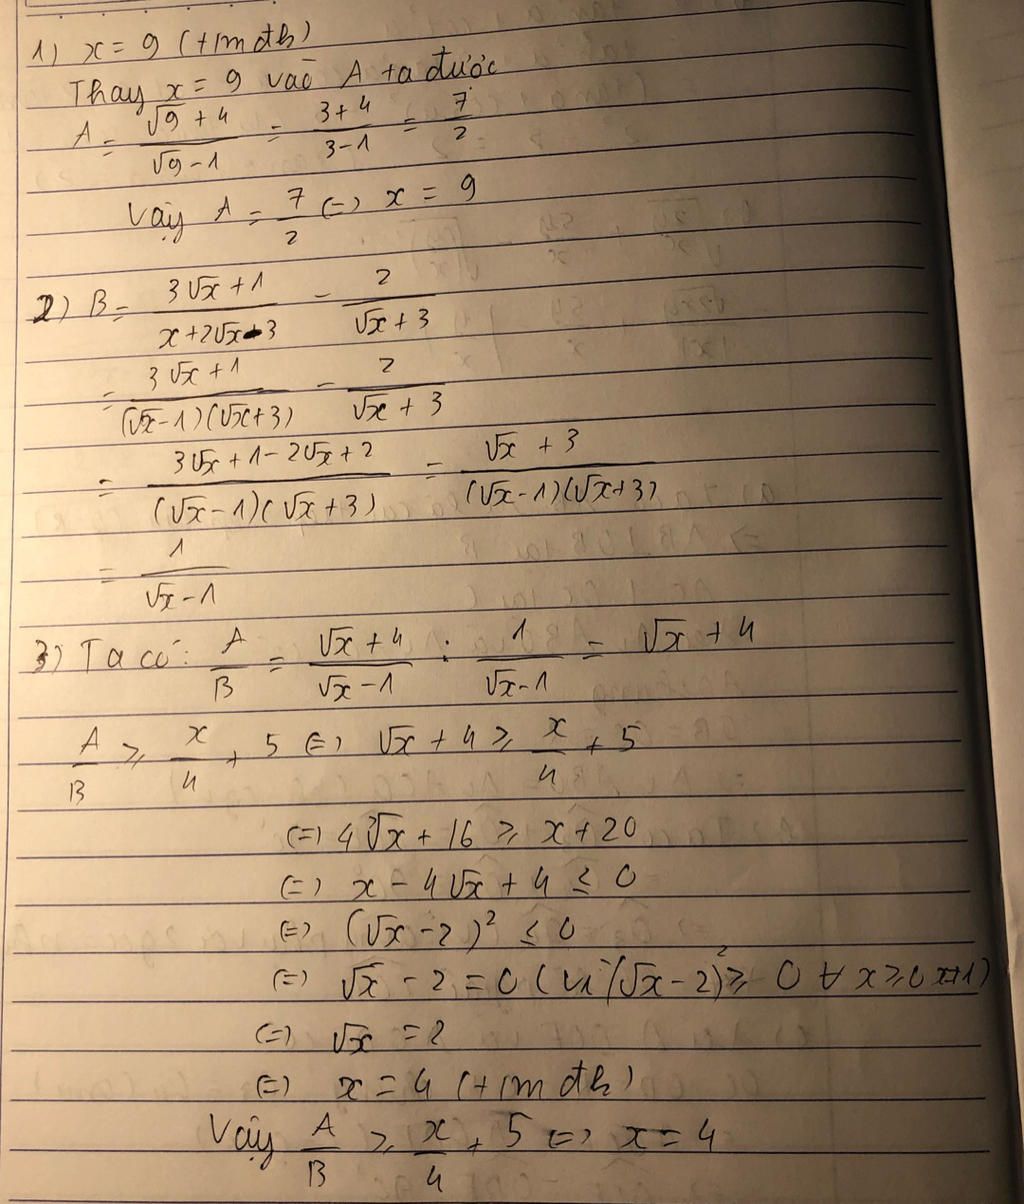 1) x = 9 (+1m đk)
Thay x = 9 vào A ta được
A = (√9 + 4)/(√9 - 1) = (3 + 4)/(3 - 1) = 7/2
Vậy A = 7/2 (=) x = 9
2) B = (3√x + 1)/(x + 2√x - 3) - 2/(√x + 3)
= (3√x + 1)/((√x - 1)(√x + 3)) - 2/(√x + 3)
= (3√x + 1 - 2√x + 2)/((√x - 1)(√x + 3)) = (√x + 3)/((√x - 1)(√x + 3))
= 1/(√x - 1)
3) Ta có: A/B = (√x + 4)/(√x - 1) : 1/(√x - 1) = √x + 4
A/B ≥ x/4 + 5 (=) √x + 4 ≥ x/4 + 5
(=) 4√x + 16 ≥ x + 20
(=) x - 4√x + 4 ≤ 0
(=) (√x - 2)² ≤ 0
(=) √x - 2 = 0 (vì (√x - 2)² ≥ 0 ∀ x ≥ 0 x≠1)
(=) √x = 2
(=) x = 4 (+1m đk)
Vậy A/B ≥ x/4 + 5 (=) x = 4